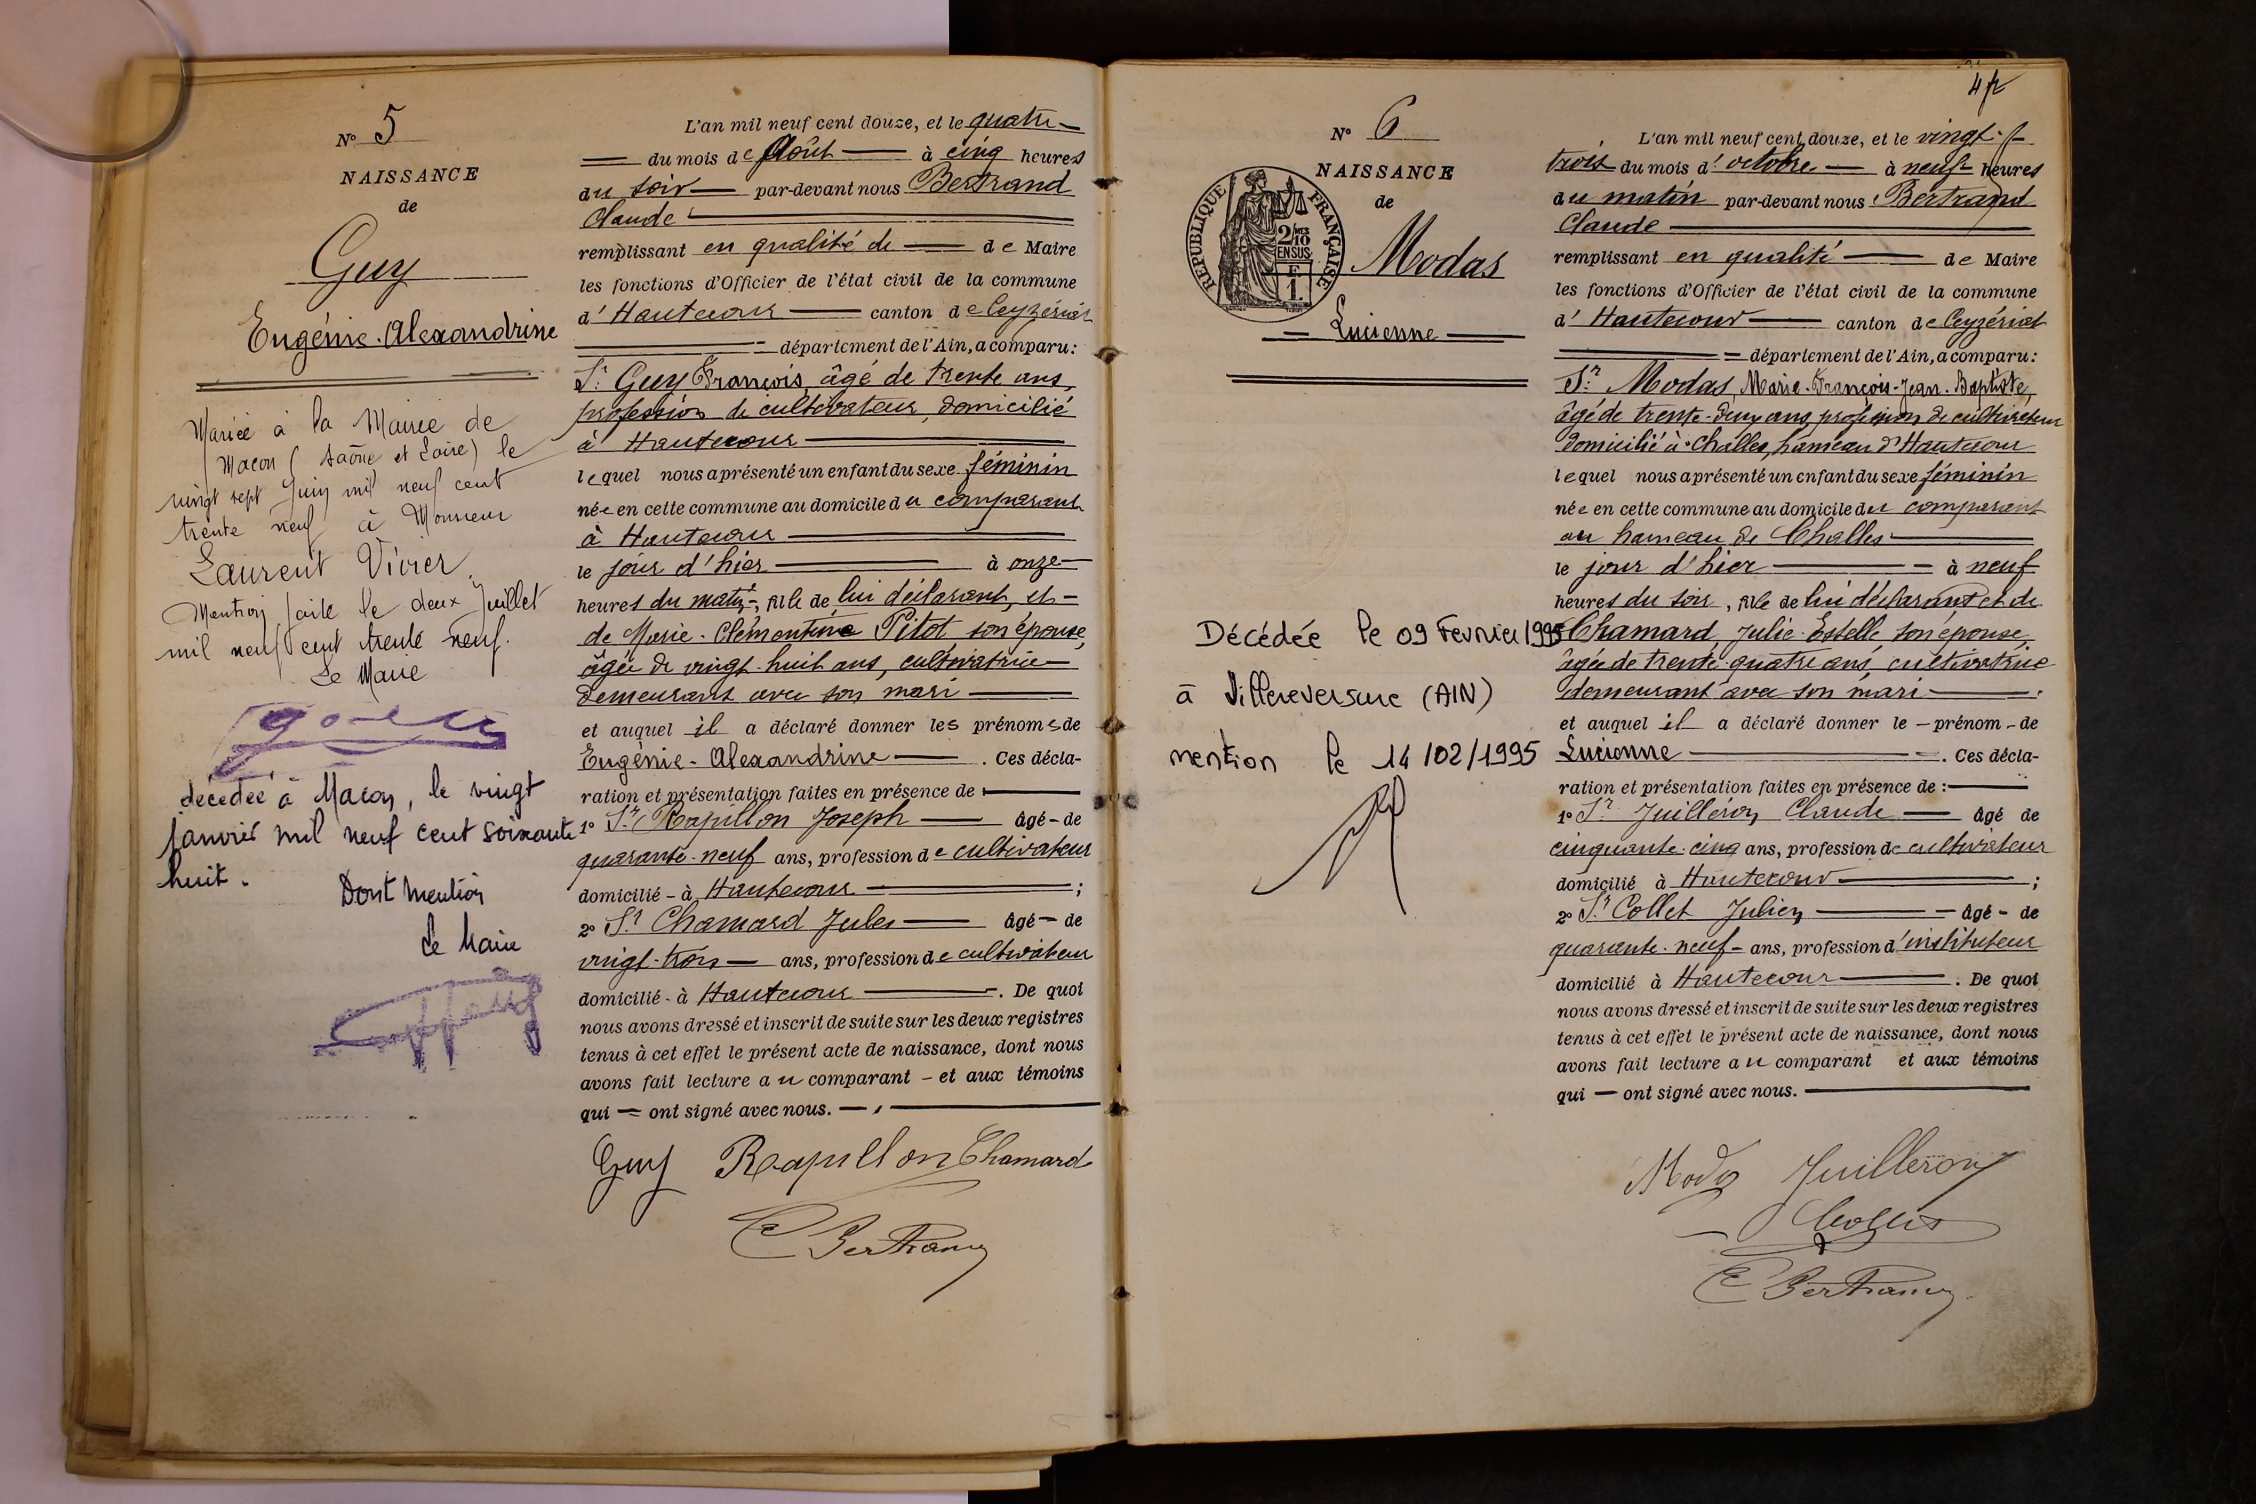 N° 5
NAISSANCE
de
Guy
Eugénie-Alexandrine
Mariée à la Mairie de
Macon (Saône et Loire) le
vingt sept Juin mil neuf cent
trente neuf à Monsieur
Laurent Vivier.
Mention faite le deux Juillet
mil neuf cent trente neuf.
Le Maire
décédée à Macon, le vingt
janvier mil neuf cent soixante
huit.
Dont mention
Le Maire
L'an mil neuf cent douze, et le quatre
du mois de Août à cinq heures
du soir par-devant nous Bertrand
Claude
remplissant en qualité de de Maire
les fonctions d'Officier de l'état civil de la commune
d'Hautecour canton de Ceyzériat
département de l'Ain, a comparu :
Sr. Guy François, âgé de trente ans,
profession de cultivateur, domicilié
à Hautecour
lequel nous a présenté un enfant du sexe féminin
née en cette commune au domicile du comparant
à Hautecour
le jour d'hier à onze
heures du matin, fille de lui déclarant, et
de Marie-Clémentine Pitot son épouse,
âgée de vingt-huit ans, cultivatrice
demeurant avec son mari
et auquel il a déclaré donner les prénoms de
Eugénie-Alexandrine. Ces décla-
ration et présentation faites en présence de
1° Sr. Rapillon Joseph âgé de
quarante-neuf ans, profession de cultivateur
domicilié à Hautecour ;
2° Sr Chamard Jules âgé de
vingt-trois ans, profession de cultivateur
domicilié à Hautecour. De quoi
nous avons dressé et inscrit de suite sur les deux registres
tenus à cet effet le présent acte de naissance, dont nous
avons fait lecture au comparant et aux témoins
qui ont signé avec nous.
Guy Rapillon Chamard
C Bertrand
N° 6
NAISSANCE
de
REPUBLIQUE FRANÇAISE
2/10
EN SUS
F
1
Modas
Lucienne
Décédée le 09 Fevrier 1995
à Villereversure (AIN)
mention le 14/02/1995
L'an mil neuf cent douze, et le vingt-
trois du mois d'octobre à neuf heures
du matin par-devant nous Bertrand
Claude
remplissant en qualité de Maire
les fonctions d'Officier de l'état civil de la commune
d'Hautecour canton de Ceyzériat
département de l'Ain, a comparu :
Sr. Modas, Marie-François-Jean-Baptiste,
âgé de trente-deux ans, profession de cultivateur
domicilié à Challes, hameau d'Hautecour
lequel nous a présenté un enfant du sexe féminin
née en cette commune au domicile du comparant
au hameau de Challes
le jour d'hier à neuf
heures du soir, fille de lui déclarant et de
Chamard, Julie-Estelle son épouse,
âgée de trente-quatre ans, cultivatrice
demeurant avec son mari.
et auquel il a déclaré donner le prénom de
Lucienne. Ces décla-
ration et présentation faites en présence de :
1° Sr. Juilléron Claude âgé de
cinquante-cinq ans, profession de cultivateur
domicilié à Hautecour ;
2° Sr Collet Julien âgé de
quarante-neuf ans, profession d'instituteur
domicilié à Hautecour. De quoi
nous avons dressé et inscrit de suite sur les deux registres
tenus à cet effet le présent acte de naissance, dont nous
avons fait lecture au comparant et aux témoins
qui ont signé avec nous.
Modas Juilleron
Collet
C Bertrand